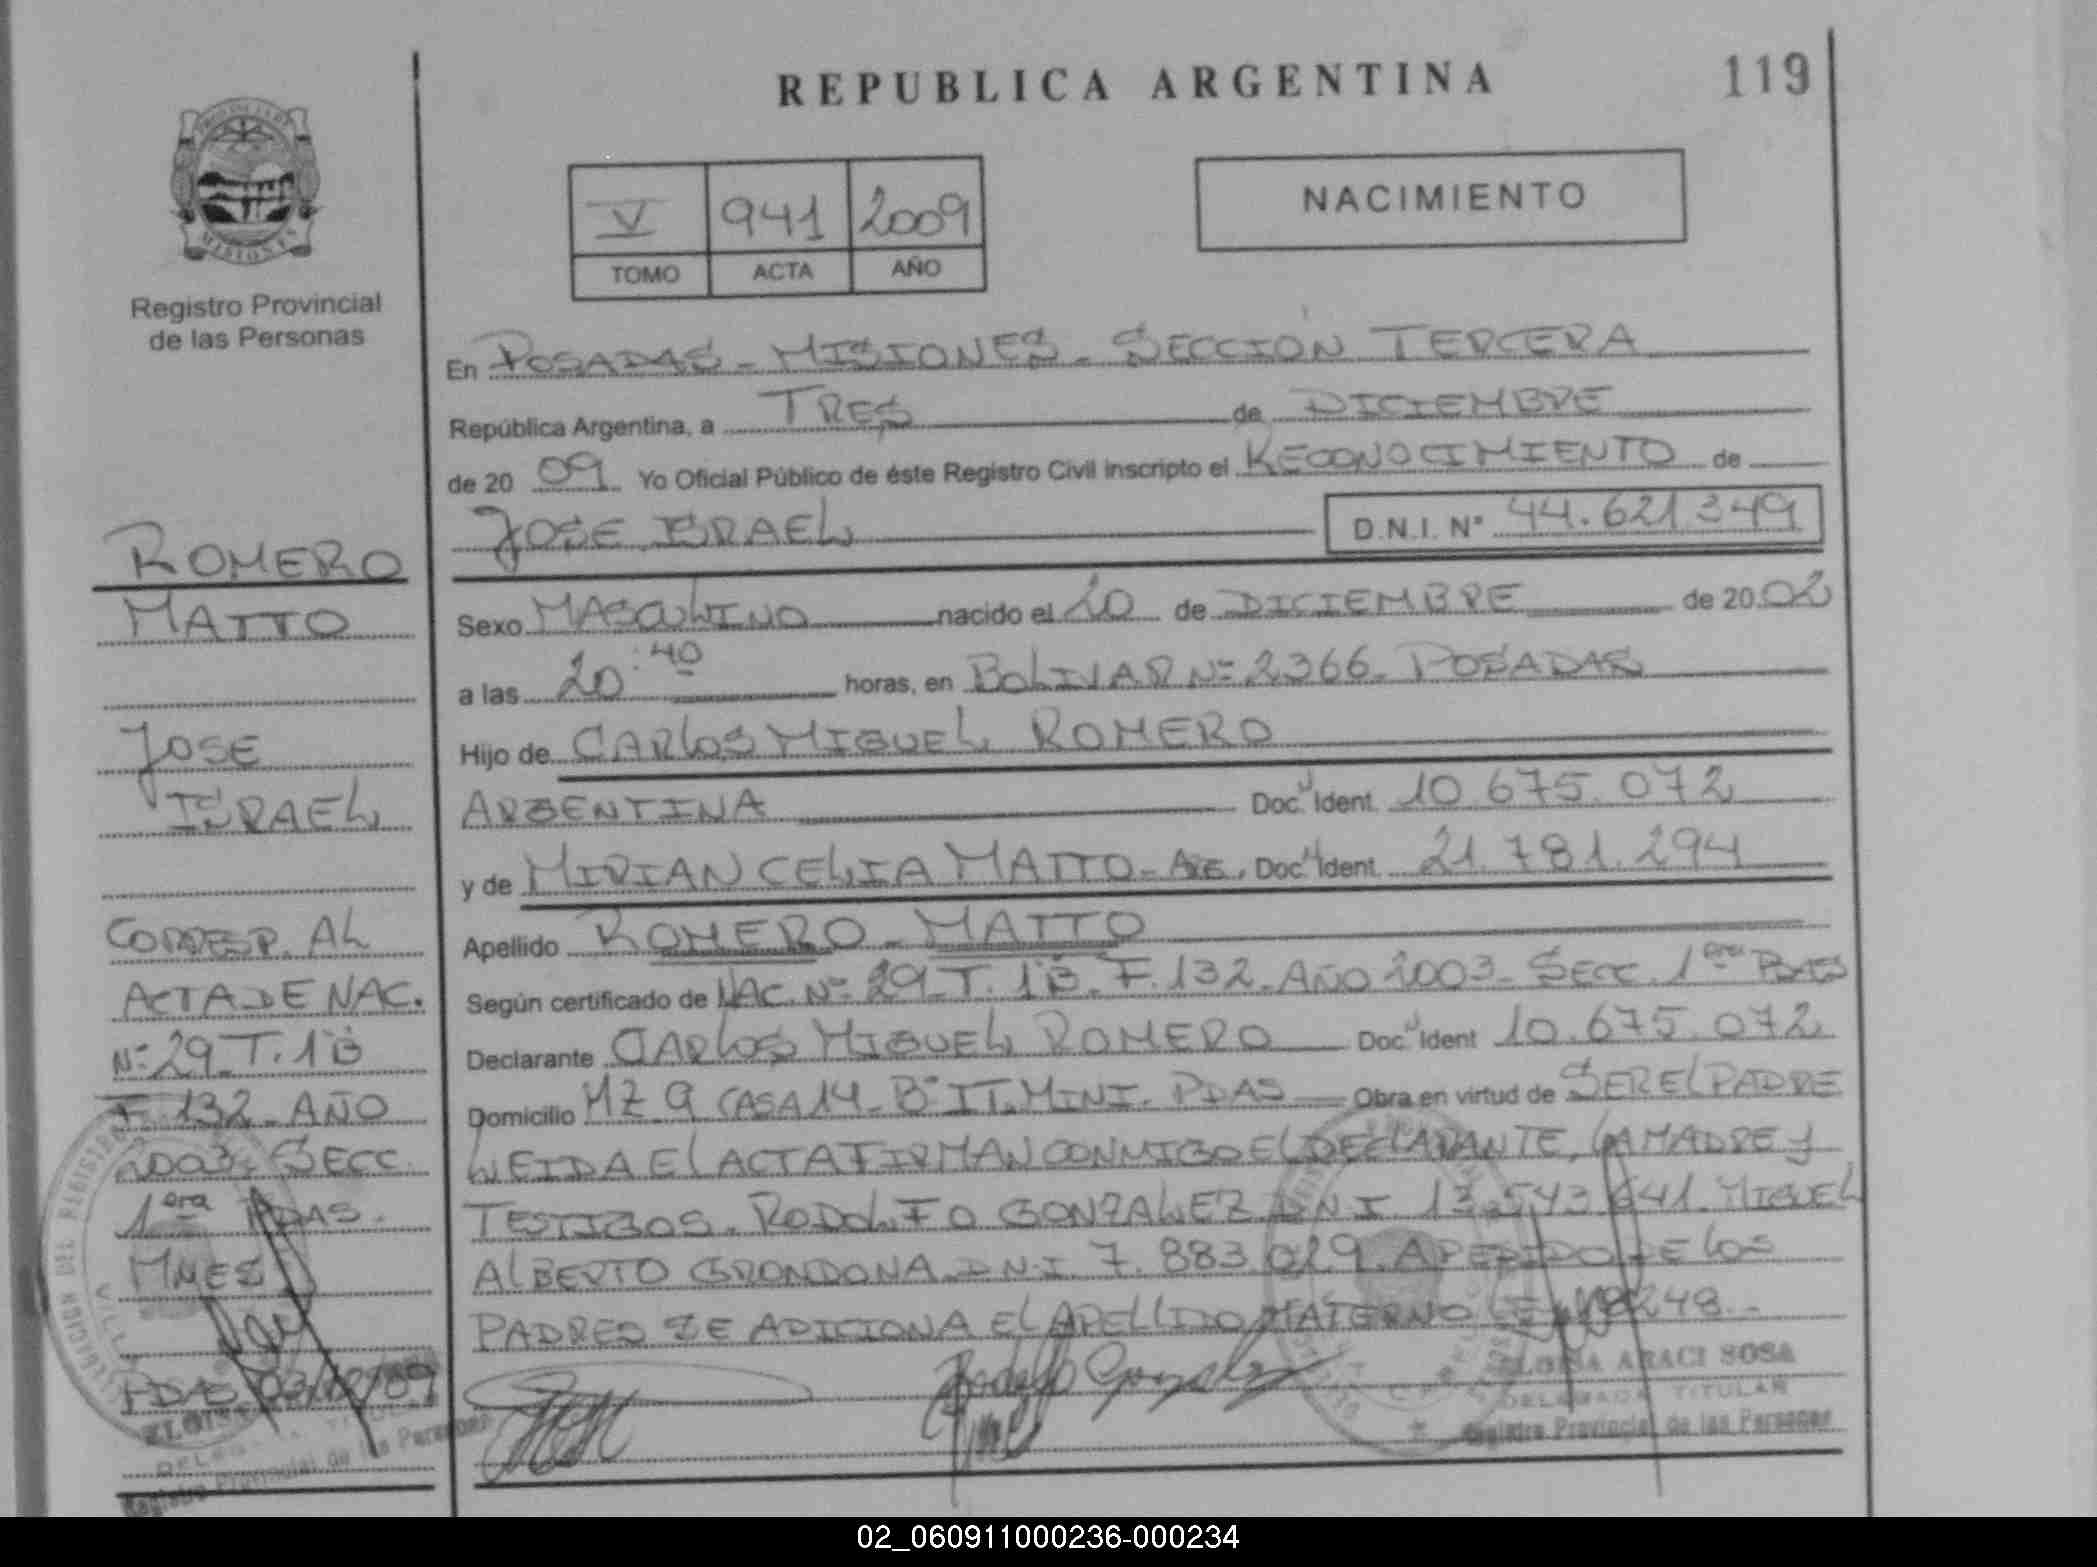 REPUBLICA ARGENTINA
119
V 941 2009
TOMO ACTA AÑO
NACIMIENTO
Registro Provincial
de las Personas
ROMERO
MATTO
JOSE
ISRAEL
CORRESP. AL
ACTA DE NAC.
Nº 29_T. 1B
F. 132_AÑO
2003. SECC.
1era PDAS.
MNES
PDAS 03/12/09
En POSADAS - MISIONES - SECCIÓN TERCERA
República Argentina, a TRES de DICIEMBRE
de 20 09 Yo Oficial Público de éste Registro Civil inscripto el RECONOCIMIENTO de
JOSE ISRAEL D.N.I. N° 44.621.349
Sexo MASCULINO nacido el 20 de DICIEMBRE de 20 02
a las 20:40 horas, en BOLIVAR Nº 2366. POSADAS
Hijo de CARLOS MIGUEL ROMERO
ARGENTINA Doc. Ident. 10.675.072
y de MIRIAN CELIA MATTO - Doc. Ident. 21.781.294
Apellido ROMERO - MATTO
Según certificado de NAC. Nº 29_T. 1B_F. 132_AÑO 2003_SECC. 1era PDAS
Declarante CARLOS MIGUEL ROMERO Doc. Ident 10.675.072
Domicilio MZ 9 CASA 14_Bº IT. MINI. PDAS Obra en virtud de SER EL PADRE
LEIDA EL ACTA FIRMAN CONMIGO EL DECLARANTE, LA MADRE Y
TESTIGOS. RODOLFO GONZALEZ D.N.I. 13.543.641. MIGUEL
ALBERTO GRONDONA D.N.I. 7.883.029. A PEDIDO DE LOS
PADRES SE ADICIONA EL APELLIDO MATERNO 18248
Rodolfo Gonzalez
ELOISA ARACI SOSA
DELEGADA TITULAR
Registro Provincial de las Personas
DELEGADA TITULAR
Registro Provincial de las Personas
02_060911000236-000234